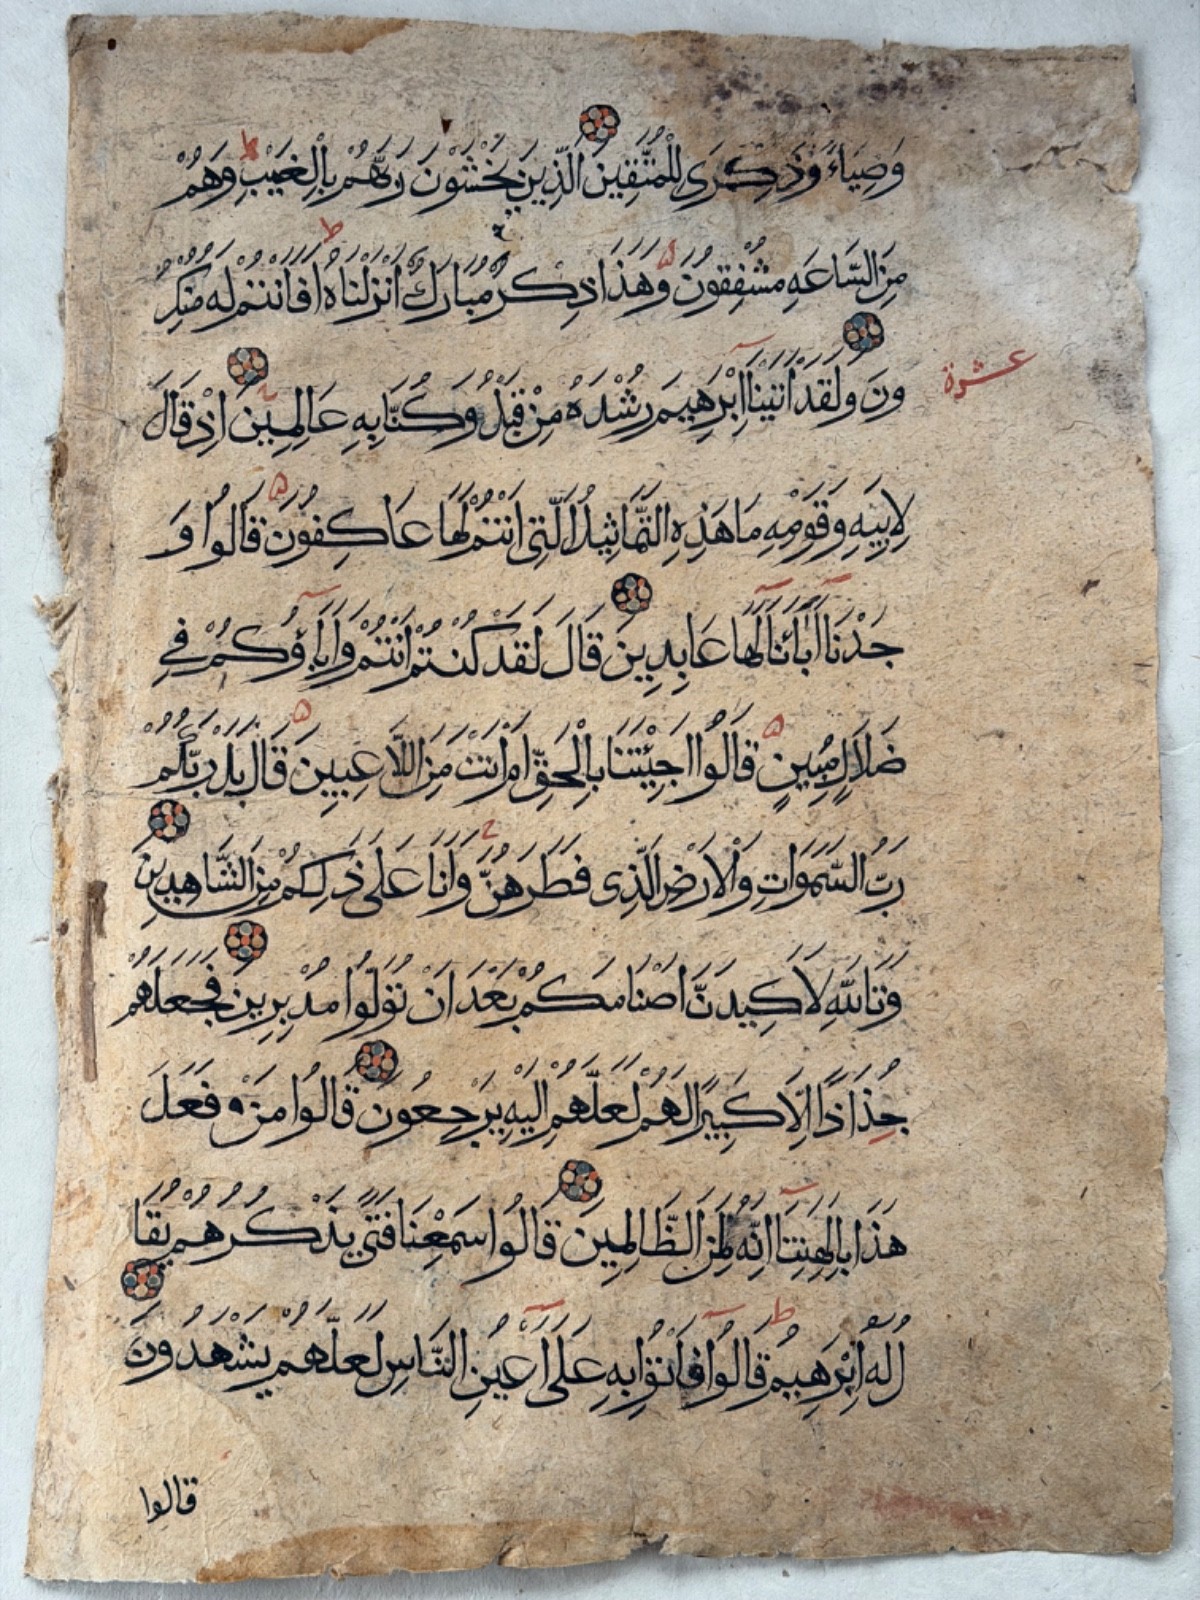 وَضِيَاءً وَذِكْرَى لِلْمُتَّقِينَ الَّذِينَ يَخْشَوْنَ رَبَّهُمْ بِالْغَيْبِ وَهُمْ
مِنَ السَّاعَةِ مُشْفِقُونَ وَهَذَا ذِكْرٌ مُبَارَكٌ أَنْزَلْنَاهُ أَفَأَنْتُمْ لَهُ مُنْكِرُ
ونَ وَلَقَدْ اٰتَيْنَا اِبْرَهِيمَ رُشْدَهُ مِنْ قَبْلُ وَكُنَّا بِهِ عَالِمِينَ اِذْ قَالَ
عشرة
لِاَبِيهِ وَقَوْمِهِ مَا هَذِهِ التَّمَاثِيلُ الَّتِى اَنْتُمْ لَهَا عَاكِفُونَ قَالُوا وَ
جَدْنَا اٰبَائَنَا لَهَا عَابِدِينَ قَالَ لَقَدْ كُنْتُمْ اَنْتُمْ وَاٰبَاؤُكُمْ فِي
ضَلَالٍ مُبِينٍ قَالُوا اَجِئْتَنَا بِالْحَقِّ اَمْ اَنْتَ مِنَ اللَّاعِبِينَ قَالَ بَلْ رَبُّكُمْ
رَبُّ السَّمَوَاتِ وَالْاَرْضِ الَّذِى فَطَرَهُنَّ وَاَنَا عَلَى ذَلِكُمْ مِنَ الشَّاهِدِينَ
وَتَاللَّهِ لَاَكِيدَنَّ اَصْنَامَكُمْ بَعْدَ اَنْ تُوَلُّوا مُدْبِرِينَ فَجَعَلَهُمْ
جُذَاذًا اِلَّا كَبِيرًا لَهُمْ لَعَلَّهُمْ اِلَيْهِ يَرْجِعُونَ قَالُوا مَنْ فَعَلَ
هَذَا بِاٰلِهَتِنَا اِنَّهُ لَمِنَ الظَّالِمِينَ قَالُوا سَمِعْنَا فَتًى يَذْكُرُهُمْ يُقَا
لُ لَهُ اِبْرَهِيمُ قَالُوا فَاْتُوا بِهِ عَلَى اَعْيُنِ النَّاسِ لَعَلَّهُمْ يَشْهَدُونَ
قالوا